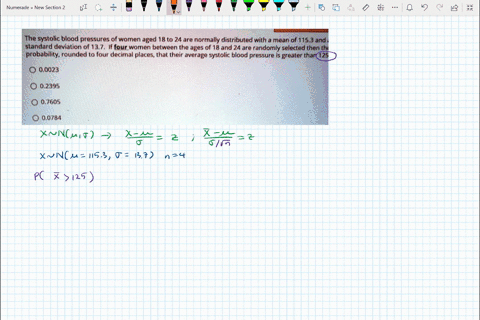 Numerade » New Section 2
The systolic blood pressures of women aged 18 to 24 are normally distributed with a mean of 115.3 and
standard deviation of 13.7. If four women between the ages of 18 and 24 are randomly selected then the
probability, rounded to four decimal places, that their average systolic blood pressure is greater than 125
0.0023
0.2395
0.7605
0.0784
X~N(μ,σ) → x-μ/σ = z ; x̄-μ/σ/√n = z
X~N(μ=115.3, σ=13.7) n=4
P( x̄ > 125)